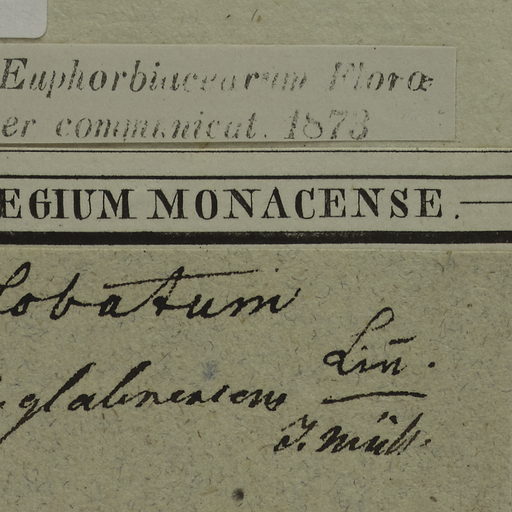 Euphorbiacearum Floræ
er communicat. 1873
EGIUM MONACENSE.
lobatum
Lin̄.
glabrescens
J. Müll.